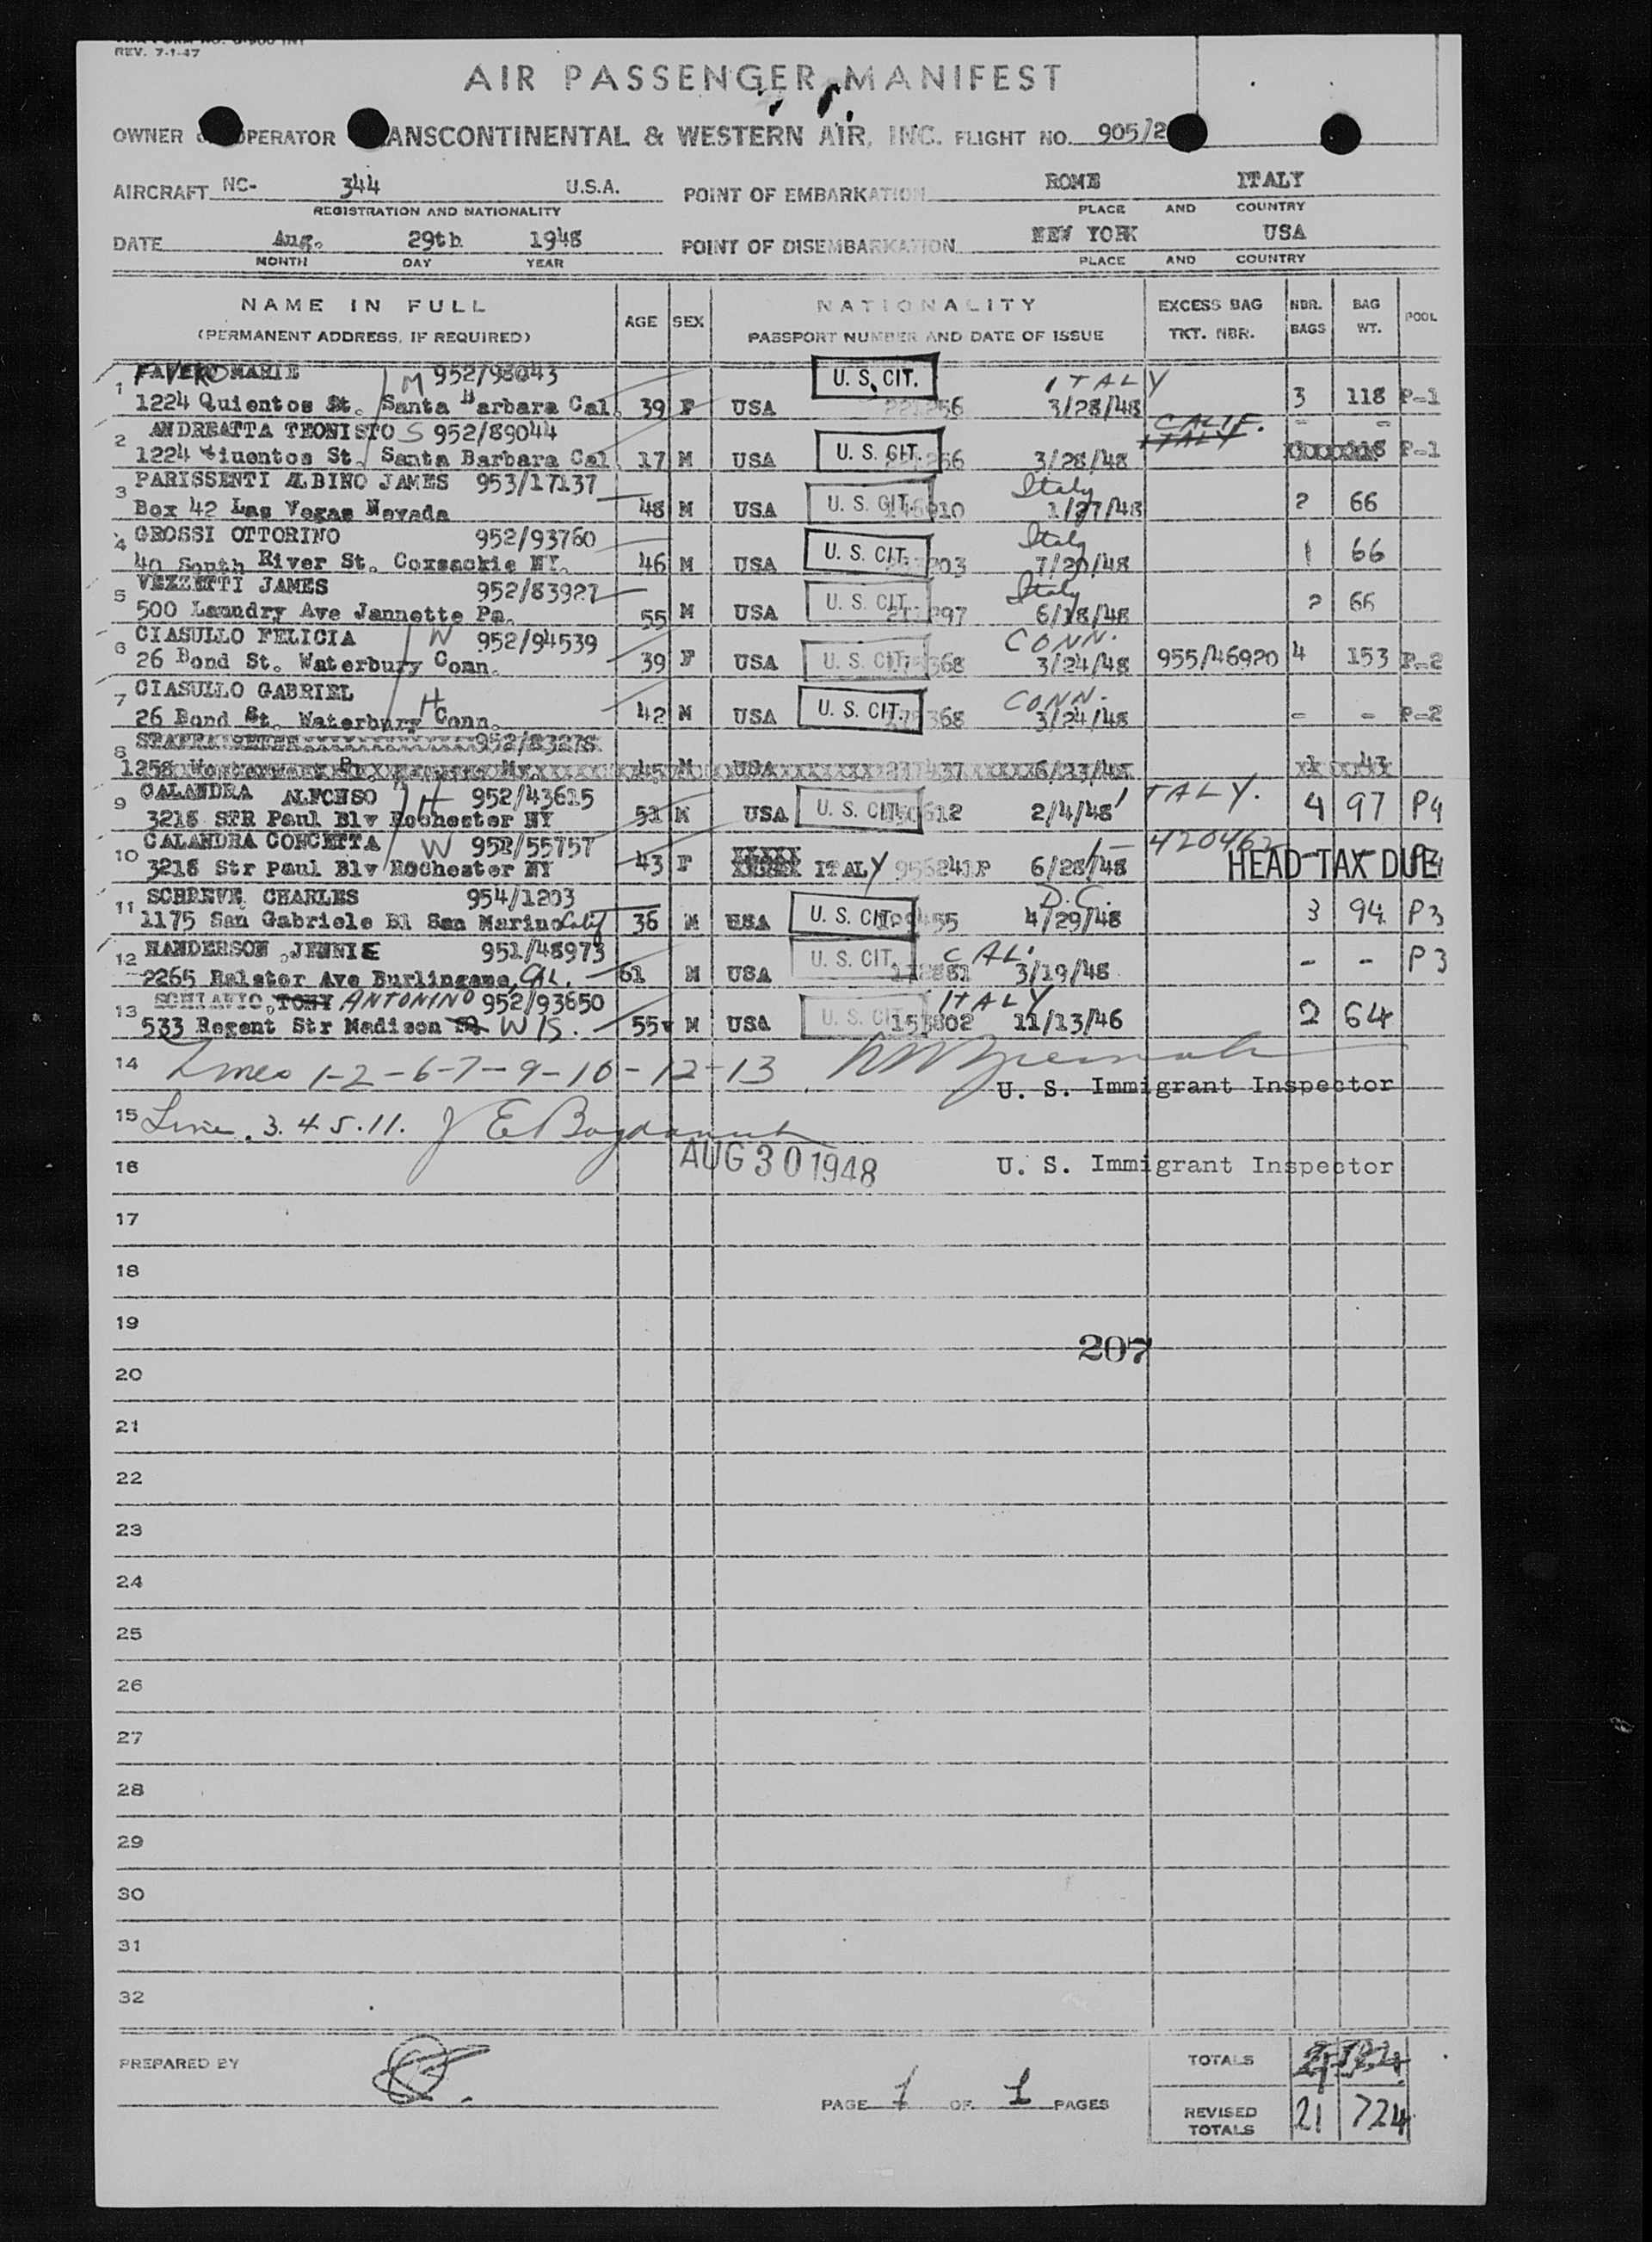 REV. 7-1-47
AIR PASSENGER MANIFEST
OWNER OPERATOR ANSCONTINENTAL & WESTERN AIR, INC. FLIGHT NO. 905/2
AIRCRAFT NC- 344 U.S.A. POINT OF EMBARKATION ROME ITALY
REGISTRATION AND NATIONALITY PLACE AND COUNTRY
DATE Aug. 29th 1948 POINT OF DISEMBARKATION NEW YORK USA
MONTH DAY YEAR PLACE AND COUNTRY
NAME IN FULL AGE SEX NATIONALITY EXCESS BAG NBR. BAG POOL
(PERMANENT ADDRESS, IF REQUIRED) PASSPORT NUMBER AND DATE OF ISSUE TKT. NBR. BAGS WT.
1 FAVERO MARIE M 952/93043 U. S. CIT. ITALY
1224 Quientos St. Santa Barbara Cal. 39 F USA 3/28/48 3 118 P-1
2 ANDREATTA TEONISTO S 952/89044 CALIF. - -
1224 Santa Barbara Cal 17 M USA U. S. CIT. 3/28/48 ITALY P-1
3 PARISSENTI ALBINO JAMES 953/17137 Italy
Box 42 Las Vegas Nevada 48 M USA U. S. CIT. 1/27/48 2 66
4 GROSSI OTTORINO 952/93760 Italy
40 South River St. Coxsackie NY. 46 M USA U. S. CIT. 7/20/48 1 66
5 VEZZETTI JAMES 952/83927 Italy
500 Laundry Ave Jannette Pa. 55 M USA U. S. CIT. 6/18/48 2 66
6 CIASULLO FELICIA W 952/94539 CONN.
26 Bond St. Waterbury Conn. 39 F USA U. S. CIT. 3/24/48 955/46920 4 153 P-2
7 CIASULLO GABRIEL H CONN.
26 Bond St. Waterbury Conn. 42 M USA U. S. CIT. 3/24/48 - - P-2
8 952/83278
1258 45 M USA 6/23/48 43
9 CALANDRA ALFONSO H 952/43615 ITALY.
3218 STR Paul Blv Rochester NY 51 M USA U. S. CIT. 2/4/48 4 97 P4
10 CALANDRA CONCETTA W 952/55757 420462
3218 Str Paul Blv ROchester NY 43 F ITALY 956241F 6/28/48 HEAD TAX DUE
11 SCHREVE CHARLES 954/1203 D.C.
1175 San Gabriele Bl San Marino Calif 36 M USA U. S. CIT. 4/29/48 3 94 P3
12 HANDERSON, JENNIE 951/48973 CAL.
2265 Ralstor Ave Burlingame, CAL. 61 M USA U. S. CIT. 3/19/48 - - P3
13 TONY ANTONINO 952/93650 ITALY
533 Regent Str Madison WIS. 55 M USA U. S. CIT. 11/13/46 2 64
14 Lines 1-2-6-7-9-10-12-13
U. S. Immigrant Inspector
15 Line. 3. 4 5. 11. J E
16 AUG 30 1948 U. S. Immigrant Inspector
17
18
19
207
20
21
22
23
24
25
26
27
28
29
30
31
32
PREPARED BY TOTALS
PAGE 1 OF 1 PAGES REVISED TOTALS 21 724